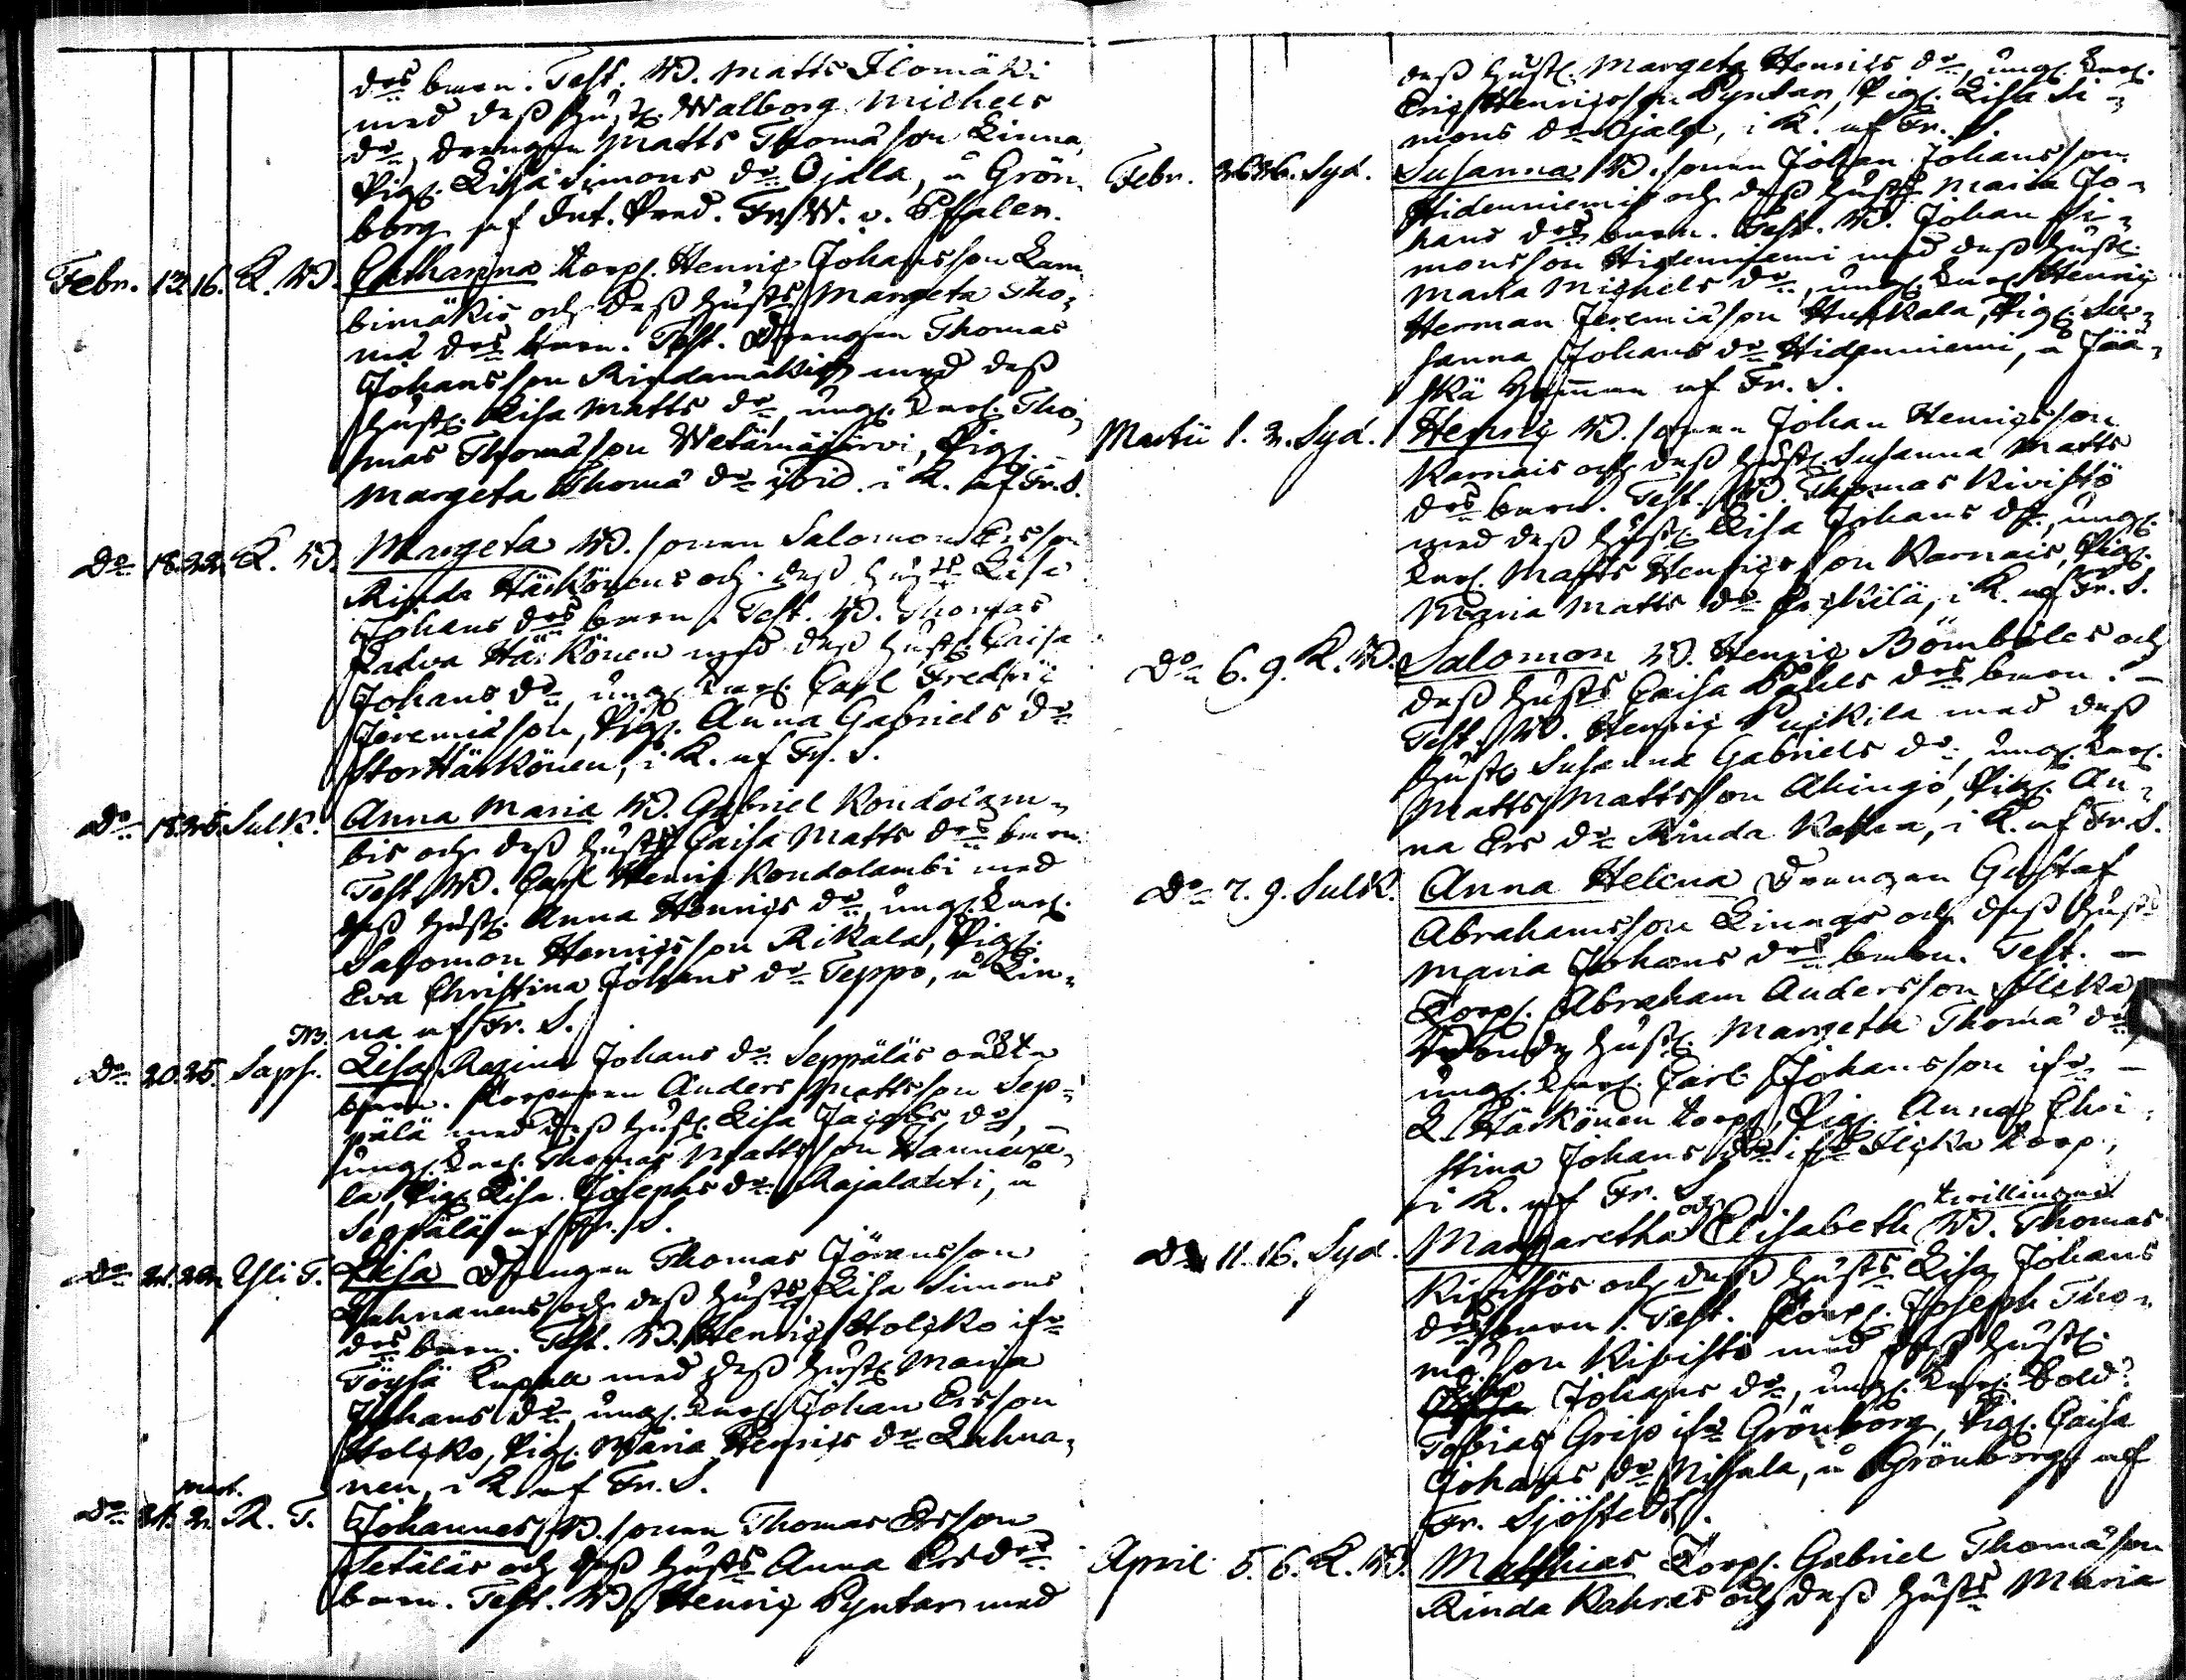 drs barn. Test. W. Matts Ilomäki
med dess hust. Walborg Michels
dr, drengen Matts Thomäson Linna,
Pig. Lisa Simons dr Ojala, å Grön-
borg af Fr. W. v. Pfalen.
Febr. 12. 16. K. W. Catharina torp. Henric Johansson Lam-
bimäkis och dess husts Margeta Tho-
mä drs barn. Test. Drengen Thomas
Johansson Rindamäki med dess
hust. Lisa Matts dr, ung. karl. Tho-
mas Thomäson Wetämäjärvi, Pig.
Margeta Thomä dr ibid. i K. af Fr. S.
Do 18. 22. K. W. Margeta W. sonen Salomon Ersson
Rinda Häikönens och dess husts Lisa
Johans drs barn. Test. W. Thomas
Ladva Häikönen med dess hust. Caisa
Johans dr, ung. karl. Carl Fredric
Jeremiäson, Pig. Anna Gabriels dr
Stor Häikönen, i K. af Fr. S.
Do 18. 25. Sulk. Anna Maria W. Gabriel Kondolam-
bis och dess husts Caisa Matts drs barn.
Test. W. Carl Henric Kondolambi med
dess hust. Anna Henrics dr, ung. karl.
Salomon Henricsson Rikala, Pig.
Eva Christina Johans dr Teppo, å Lin-
na af Fr. S.
NB.
Do 20. 25. Saps. Lisa Regina Johans dr Seppäläs oäkta
barn. Torparen Anders Mattsson Sep-
pälä med dess hust. Lisa Jacobs dr,
ung. karl. Thomas Mattsson Hannuxe-
la, Pig. Lisa Josephs dr Rajalahti, å
Seppälä af Fr. S.
Do 21. 22. Yli T. Lisa Drengen Thomas Jöransson
Lahnanens och dess husts Lisa Simons
drs barn. Test. W. Henric Holcko ifr
Töysä Capell med dess hust. Maria
Johans dr, ung. karl. Johan Ersson
Holcko, Pig. Maria Henrics dr Lahna-
nen, i K. af Fr. S.
Mart.
Do 21. 2. R. T. Johannes W. sonen Thomas Ersson
Setäläs och dess husts Anna Ers drs
barn. Test. W. Henric Pyntar med
dess hust. Margeta Henrics dr, ung. karl.
Eric Henricsson Pyntar, Pig. Lisa Si-
mons dr Ojala, i K. af Fr. S.
Febr. 26. 26. Syd. Susanna W. sonen Johan Johansson
Hidenniemis och dess husts Maria Jo-
hans drs barn. Test. W. Johan Si-
monsson Hidenniemi med dess hust.
Maria Michels dr, ung. karl Henric
Herman Jeremiäson Huhkala, Pig. Su-
sanna Johans dr Hidenniemi, å Jää-
skä hemman af Fr. S.
Martii 1. 2. Syd. Henric W. sonen Johan Henricsson
Karnais och dess hust. Susanna Matts
drs barn. Test. W. Thomas Kivistö
med dess hust. Lisa Johans dr, ung.
karl. Matts Henricsson Karnais, Pig.
Maria Matts dr, i K. af Fr. S.
Do 6. 9. K. W. Salomon W. Henric Bömböles och
dess husts Caisa Påhls drs barn. -
Test. W. Henric Puckila med dess
hust. Susanna Gabriels dr, ung. karl.
Matts Mattsson Akingö, Pig. An-
na Ers dr Rinda Katka, i K. af Fr. S.
Do 7. 9. Sulk. Anna Helena Drengen Gustaf
Abrahamsson Linnas och dess husts
Maria Johans drs barn. Test. -
Torp. Abraham Andersson Flicka
hust. Margeta Thomä dr,
ung. karl. Carl Johansson ifr -
L. Häikönen torp, Pig. Anna Chri-
stina Johans dr ifr Flicka torp,
i K. af Fr. S.
tvillingar
Do 11. 16. Syd. Margaretha och Elisabeth W. Thomas
Kivistös och dess husts Lisa Johans
drs barn. Test. Torp. Joseph Tho-
mäson Kivistö med dess hust.
Johans dr, ung. karl. Sold.
Tobias Grip ifr Grönborg, Pig. Caisa
Johans dr Nisula, å Grönborg af
Fr. Sjöstedt.
April 5. 6. K. W. Matthias Torp. Gabriel Thomäson
Rinda Kahras och dess husts Maria